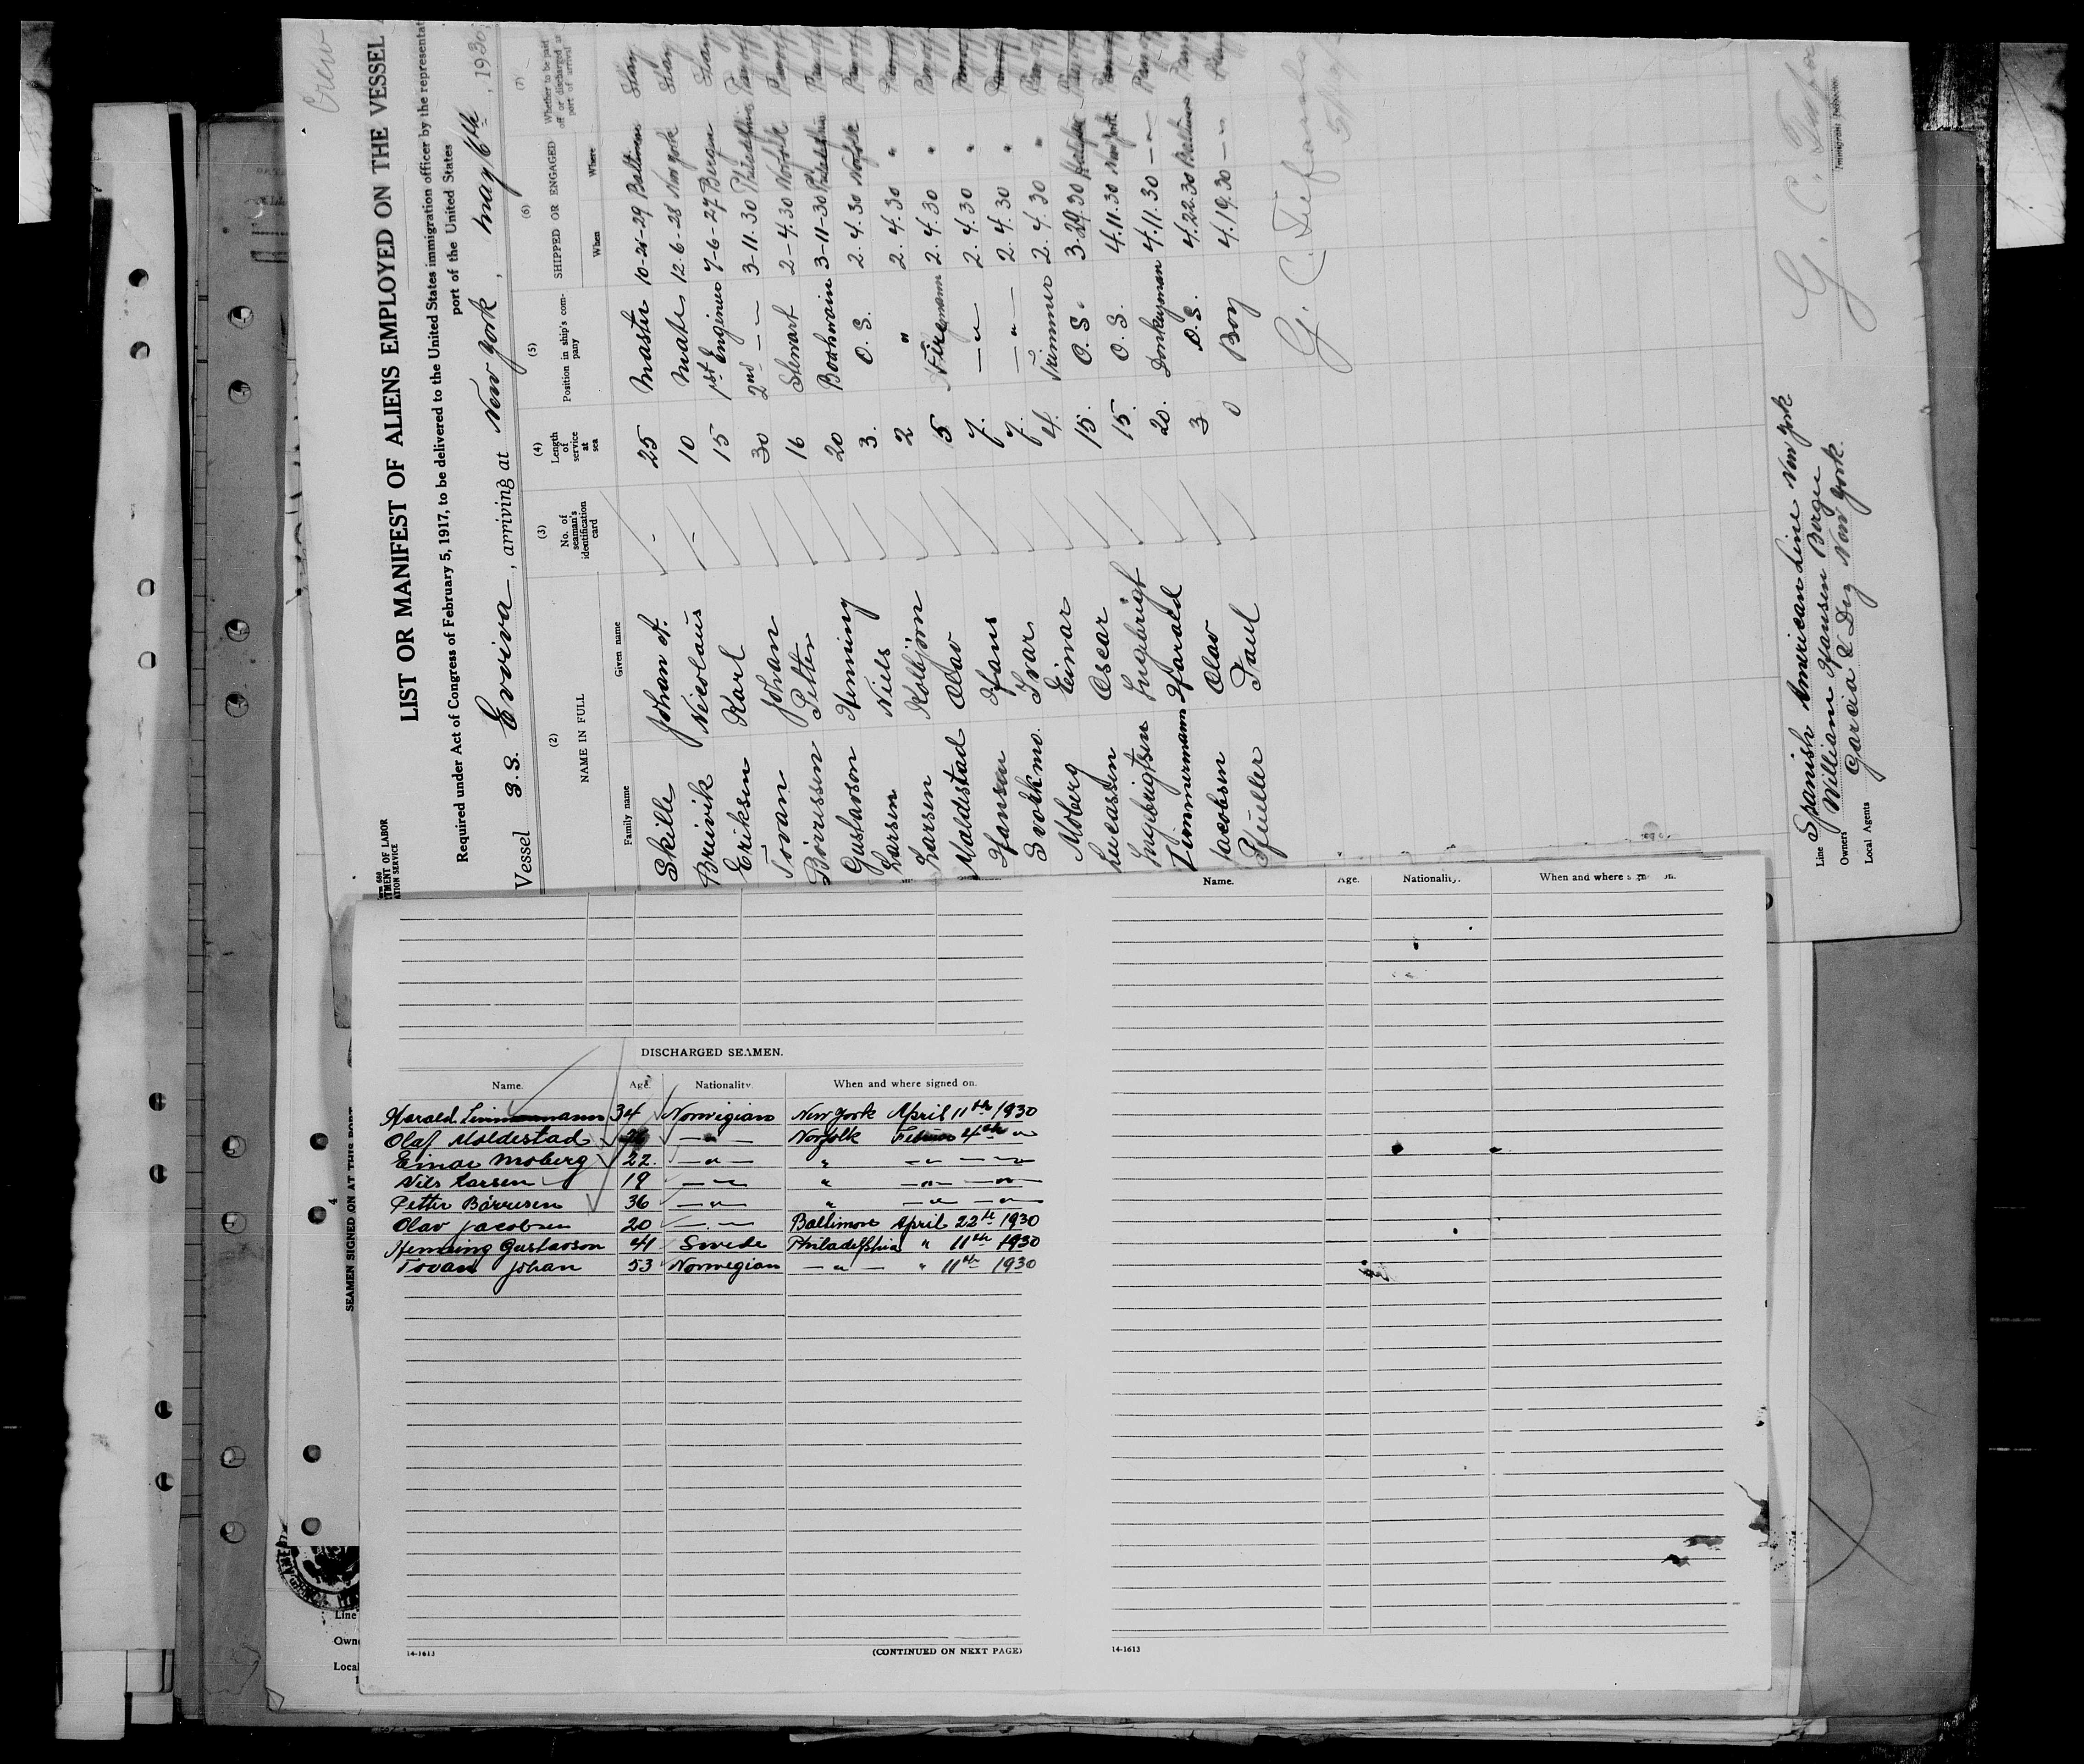 Crew
LIST OR MANIFEST OF ALIENS EMPLOYED ON THE VESSEL
TMENT OF LABOR
ATION SERVICE
Required under Act of Congress of February 5, 1917, to be delivered to the United States immigration officer by the representat
port of the United States
Vessel S.S. Eviva, arriving at New York, May 6th, 1930,
(2) (3) (4) (5) (6) (7)
NAME IN FULL No. of seaman's identification card Length of service at sea Position in ship's company SHIPPED OR ENGAGED Whether to be paid off or discharged at port of arrival
Family name Given name When Where
Skille Johan A. - 25 Master 10-21-29 Baltimore Stay
Breivik Nicolaus - 10 Mate 12-6-28 New York Stay
Eriksen Karl 15 1st Engineer 7-6-27 Bergen Stay
Tovan Johan 30 2nd - " - 3-11.30 Philadelphia Pay off
Börressen Petter 16 Stewart 2-4.30 Norfolk Pay off
Gustavson Henning 20 Boatswain 3-11-30 Philadelphia Pay off
Larsen Niels 3. O. S. 2. 4. 30 Norfolk Pay off
Larsen Kolbjörn 2 " 2. 4. 30 "
Moldestad Olav 5 Firemann 2. 4. 30 "
Hansen Hans 7. - " - 2. 4. 30 "
Svotkmo. Ivar 7. - " - 2. 4. 30 "
Moberg Einar 4. Trimmer 2. 4. 30 "
Lucassen Oscar 15. O. S. 3.29.30
Ingebrigtsen Ingebrigt 15. O. S. 4.11.30 New York
Zimmermann Harald 20. Donkeyman 4.11.30 - " -
Jacobsen Olav 3 O.S. 4.22.30 Baltimore
Pfuller Paul 0 Boy 4.19.30 - " -
G. C.
G. C.
Immigrant Inspector.
Line Spanish American Line New York
Owners William Hansen Bergen
Local Agents Garcia & Diaz New York.
Name. Age. Nationality. When and where signed on.
DISCHARGED SEAMEN.
Name. Age. Nationality. When and where signed on.
Harald Zimmermann 34 Norwigian New York April 11th 1930
Olaf Moldestad - " - Norfolk 4th "
Einar Moberg 22. - " - " - " - - " -
Nils Larsen 19 - " - " - " - - " -
Petter Börresen 36 - " - " - " - - " -
Olav Jacobsen 20 - " - Baltimore April 22th 1930
Henning Gustavson 41 Swede Philadelphia " 11th 1930
Tovan Johan 53 Norwegian - " - " 11th 1930
14-1613 (CONTINUED ON NEXT PAGE)
14-1613
4
SEAMEN SIGNED ON AT THIS PORT
Line
Owne
Local